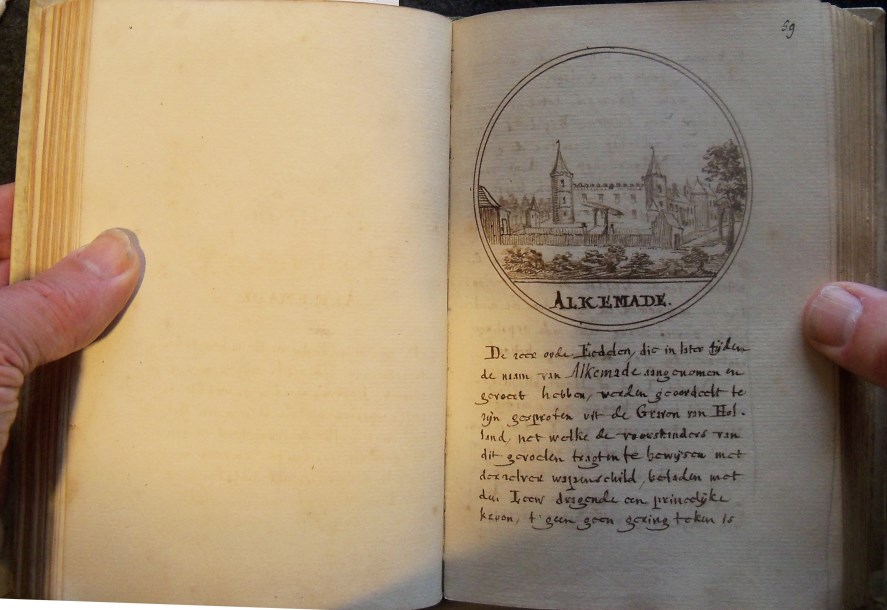 59
ALKEMADE.
De zeer oude Eedelen, die in later tijden
de naam van Alkemade aangenomen en
gevoert hebben, werden geoordeelt te
zijn gesproten uit de Graven van Hol-
land, het welke de voorstanders van
dit gevoelen tragten te bewijsen met
derzelver wapenschild, beladen met
den Leew dragende een princelijke
kroon, t'geen geen gering teken is